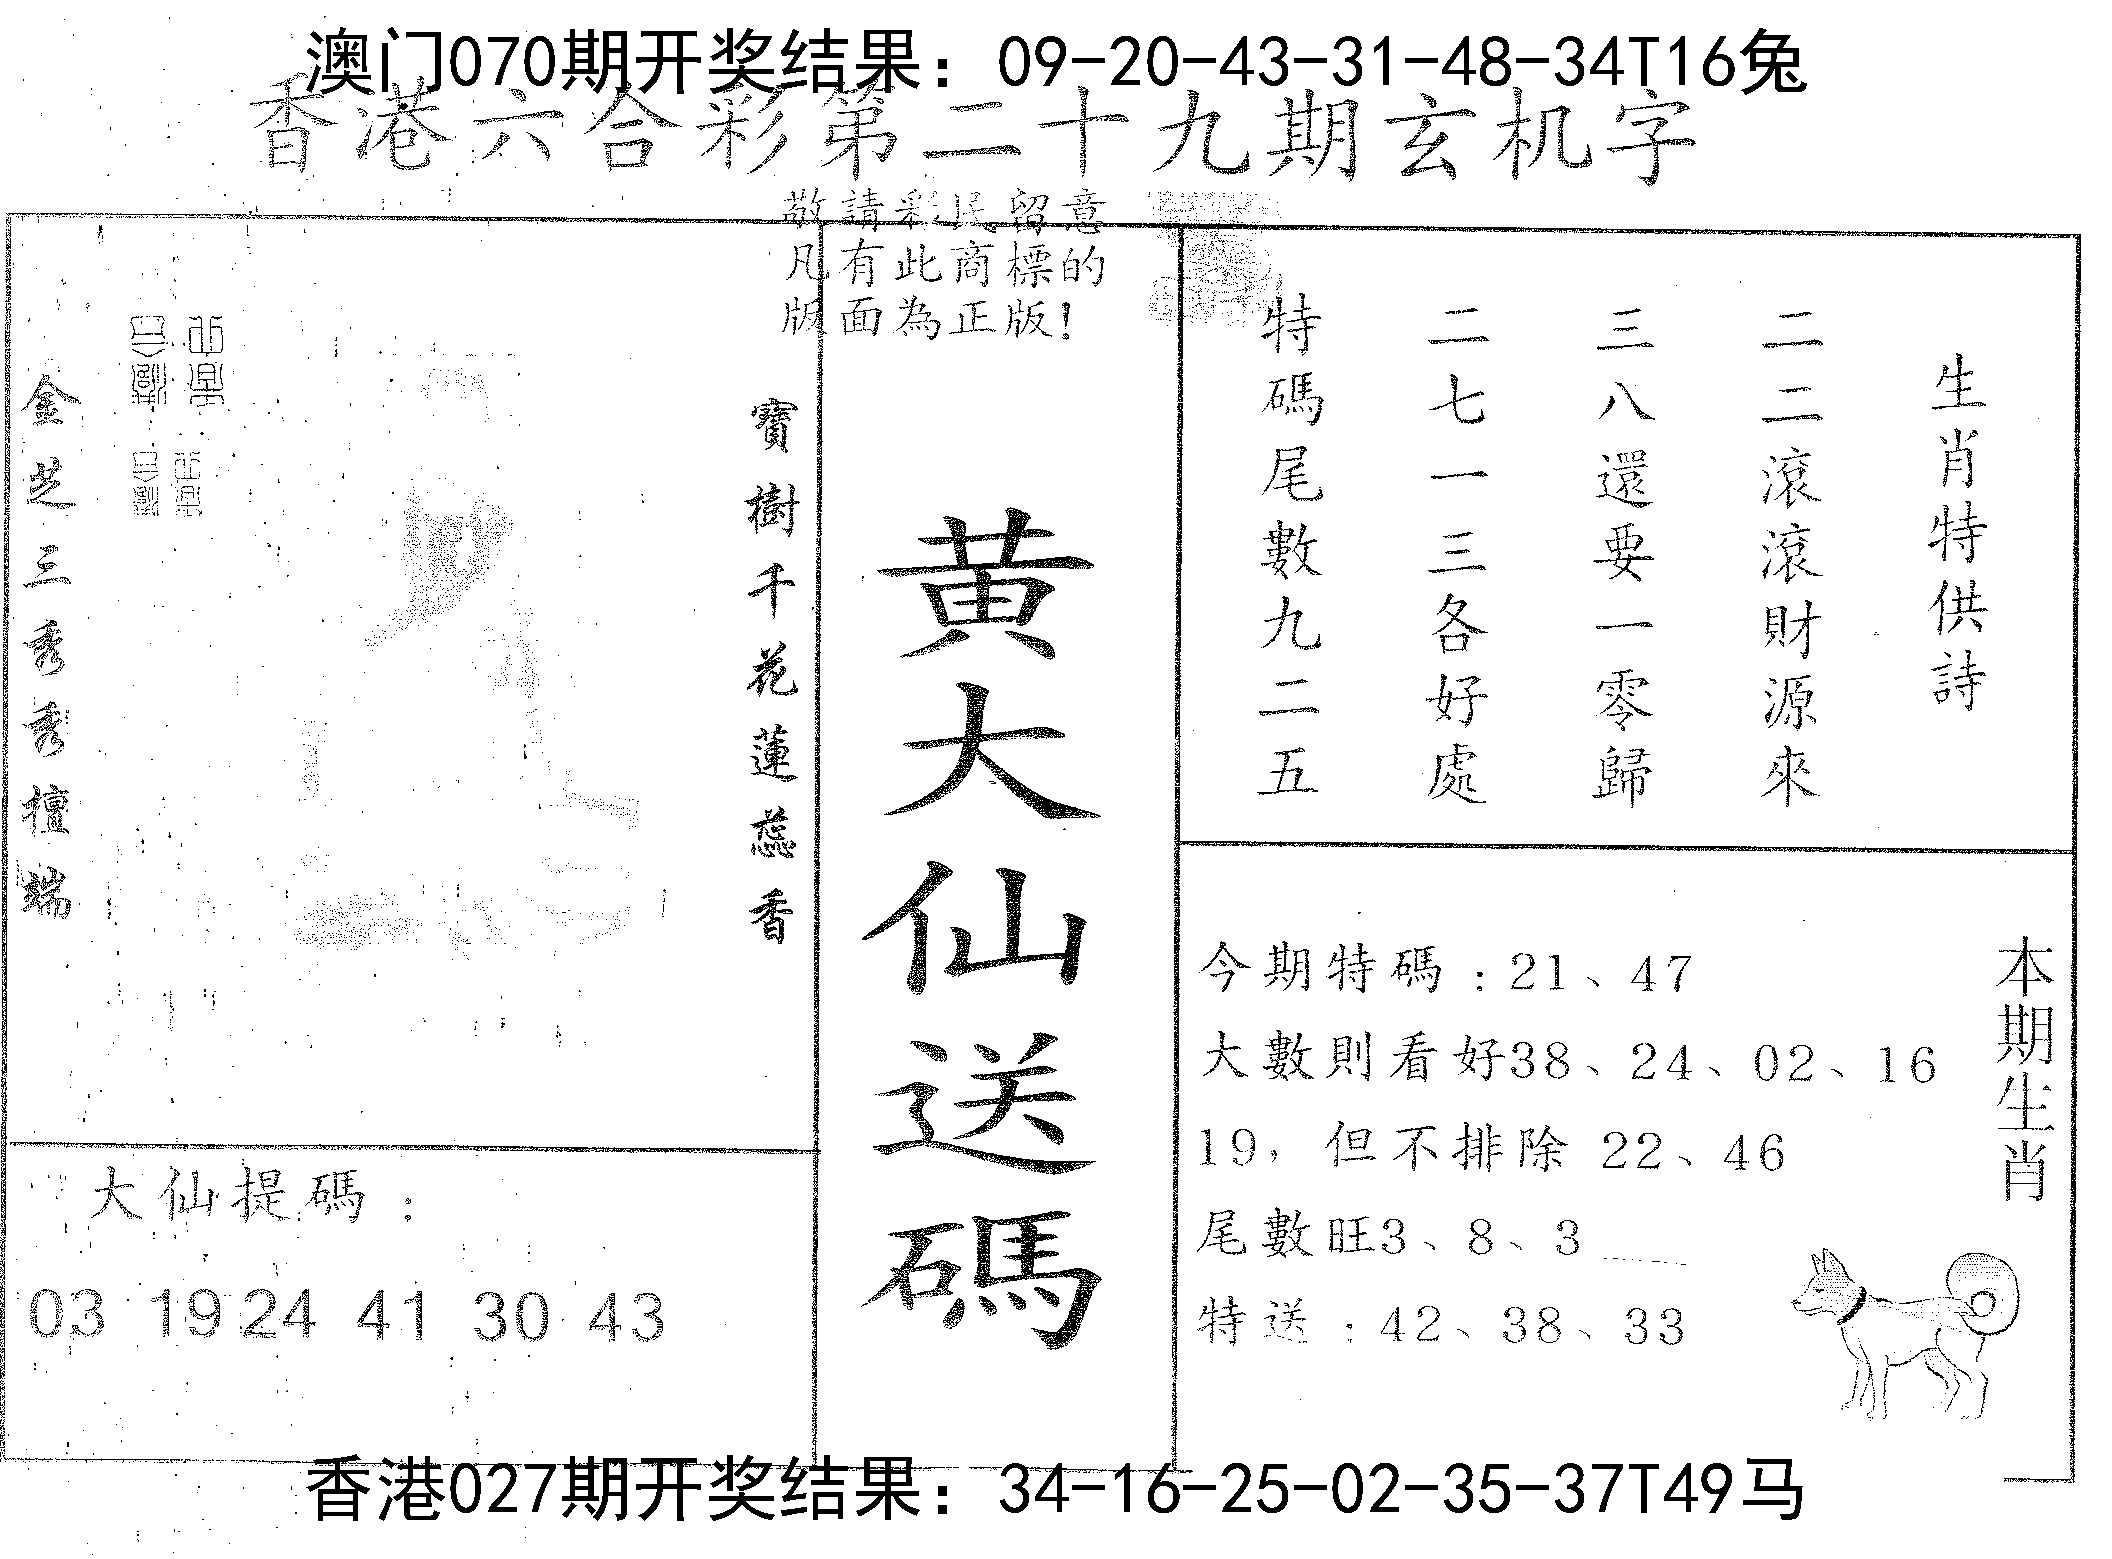 澳门070期开奖结果：09-20-43-31-48-34T16兔
香港六合彩第二十九期玄机字
敬請彩民留意
凡有此商標的
版面為正版！
生肖特供詩
二二滾滾財源來
三八還要一零歸
二七一三各好處
特碼尾數九二五
黄大仙送碼
寶樹千花蓮蕊香
金芝三秀秀檀端
大仙提碼：
03 19 24 41 30 43
本期生肖
今期特碼：21、47
大數則看好38、24、02、16
19，但不排除 22、46
尾數旺3、8、3
特送：42、38、33
香港027期开奖结果：34-16-25-02-35-37T49马